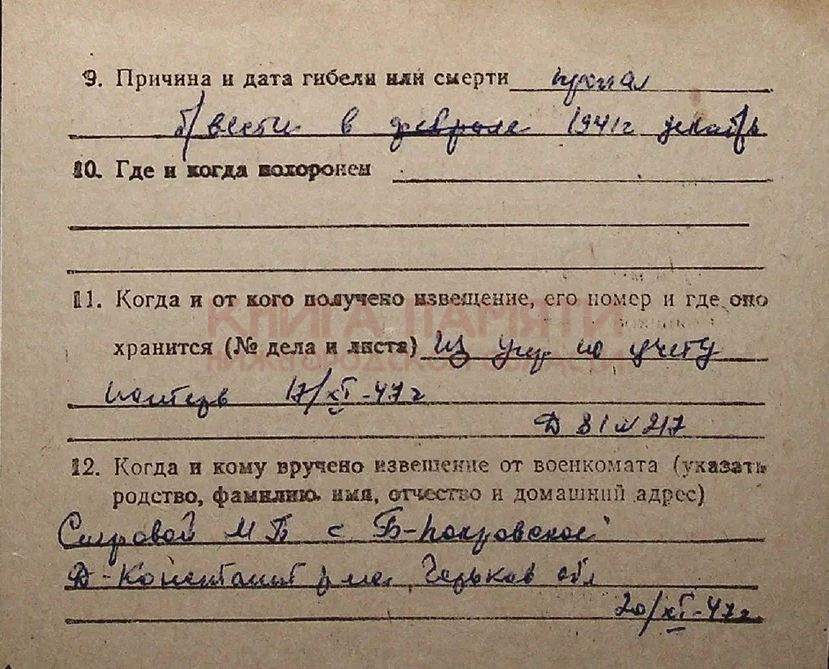 9. Причина и дата гибели или смерти пропал
б/вести в феврале 1941г декабрь
10. Где и когда похоронен
11. Когда и от кого получено извещение, его номер и где оно
КНИГА ПАМЯТИ
хранится (№ дела и листа) из упр по учету
НИЖЕГОРОДСКОЙ ОБЛАСТИ
потерь 17/XI-47г
Д 81 л 217
12. Когда и кому вручено извещение от военкомата (указать
родство, фамилию, имя, отчество и домашний адрес)
М Б с Б-Покровское
Д-Констант р-на, Горьков обл
20/XI-47г